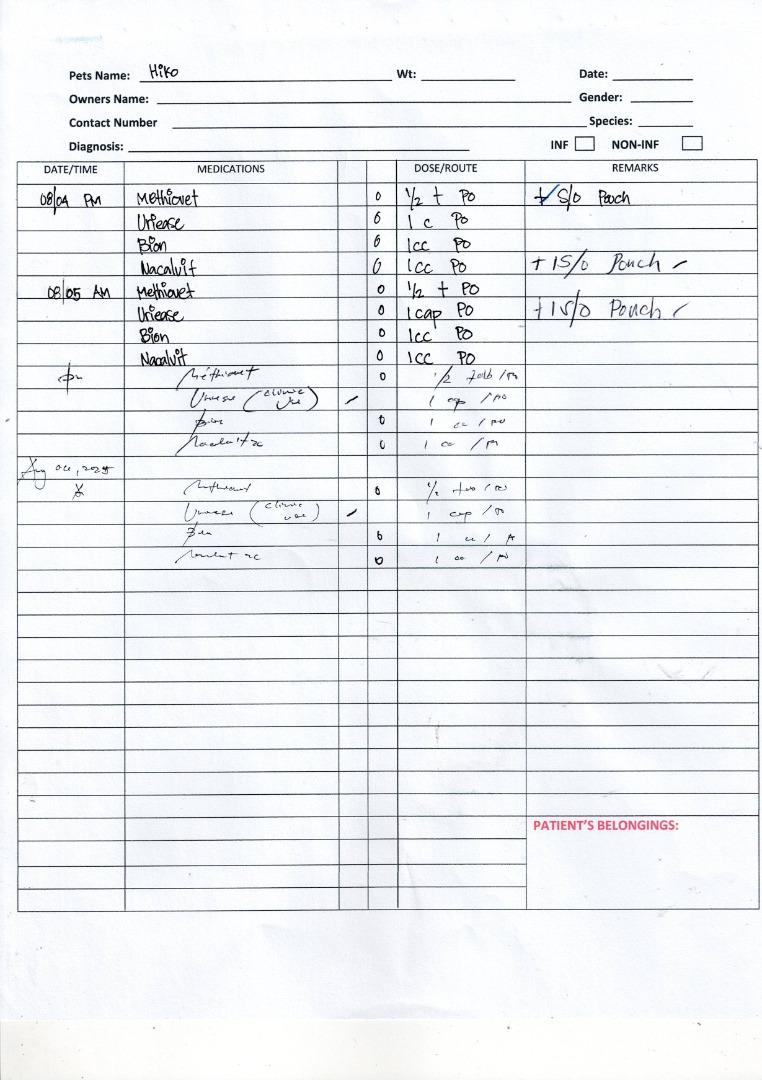 Pets Name: Hiko Wt: Date:
Owners Name: Gender:
Contact Number Species:
Diagnosis: INF NON-INF
DATE/TIME MEDICATIONS DOSE/ROUTE REMARKS
08/04 PM Methiovet 0 1/2 t PO + S/O Pouch
Uriease 0 1 c PO
Bion 0 1cc PO
Nacalvit 0 1cc PO + 1 S/O Pouch
08/05 AM Methiovet 0 1/2 t PO
Uriease 0 1 cap PO + 1 S/O Pouch
Bion 0 1cc PO
Nacalvit 0 1cc PO
pm Methiovet 0 1/2 tab / PO
Uriease (clinic use) 1 cap / PO
Bion 0 1 cc / PO
0 1 cc / PO
Aug 06, 2025
0 1/2 / PO
Uriease (clinic use) 1 cap / PO
0 1 cc /
0 1 cc / PO
PATIENT'S BELONGINGS: